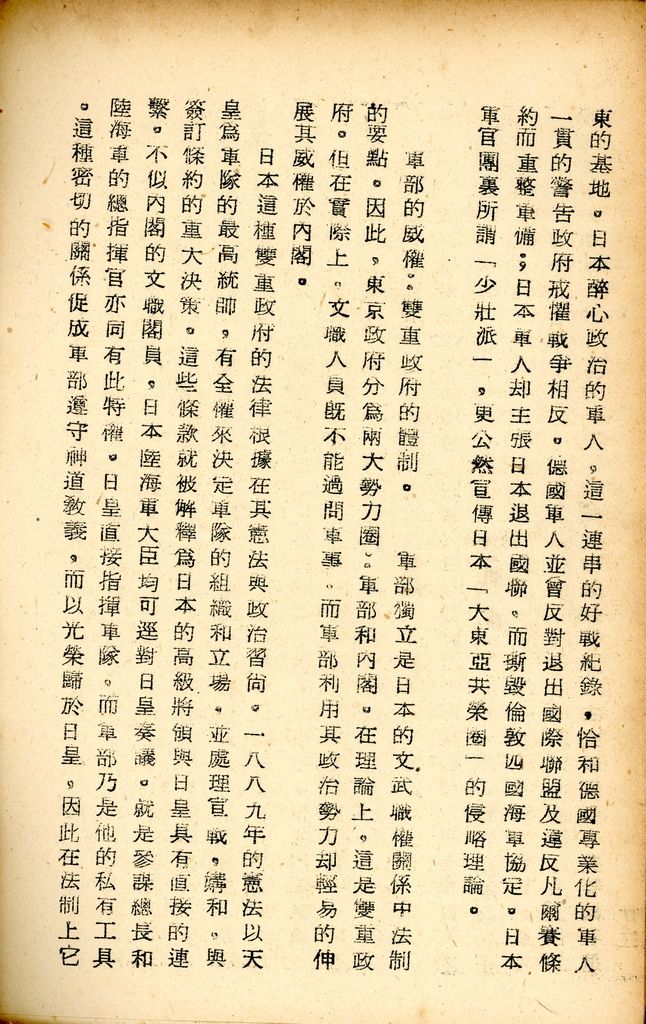 東的基地。日本醉心政治的軍人，這一連串的好戰紀錄，恰和德國專業化的軍人
一貫的警告政府戒懼戰爭相反。德國軍人並曾反對退出國際聯盟及違反凡爾賽條
約而重整軍備，日本軍人却主張日本退出國聯。而撕毀倫敦四國海軍協定。日本
軍官團裏所謂「少壯派」，更公然宣傳日本「大東亞共榮圈」的侵略理論。
軍部的威權：雙重政府的體制。　軍部獨立是日本的文武職權關係中法制
的要點。因此，東京政府分爲兩大勢力圈：軍部和內閣。在理論上。這是雙重政
府。但在實際上，文職人員旣不能過問軍事，而軍部利用其政治勢力却輕易的伸
展其威權於內閣。
日本這種雙重政府的法律根據在其憲法與政治習尙。一八八九年的憲法以天
皇爲軍隊的最高統帥，有全權來決定軍隊的組織和立場，並處理宣戰，媾和，與
簽訂條約的重大決策。這些條款就被解釋爲日本的高級將領與日皇具有直接的連
繫。不似內閣的文職閣員，日本陸海軍大臣均可逕對日皇奏議。就是參謀總長和
陸海軍的總指揮官亦同有此特權。日皇直接指揮軍隊。而軍部乃是他的私有工具
。這種密切的關係促成軍部遵守神道敎義，而以光榮歸於日皇，因此在法制上它